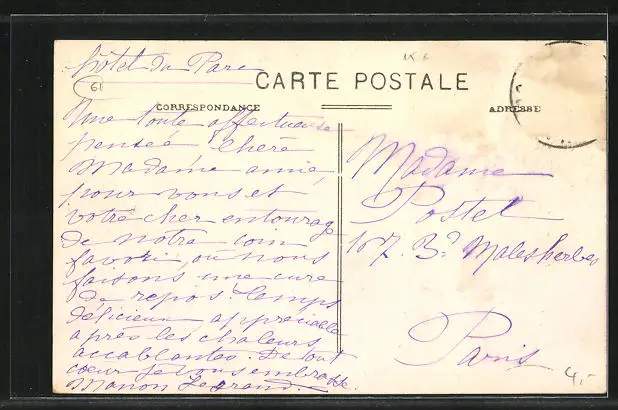 hôtel du Parc
61
CARTE POSTALE
CORRESPONDANCE
ADRESSE
Une toute affectueuse
pensée chère
Madame amie,
pour vous et
votre cher entourage
de notre coin
favori, où nous
faisons une cure
de repos. Temps
délicieux appréciable
après les chaleurs
accablantes. De tout
cœur je vous embrasse.
Manon Legrand.
Madame
Postel
107. Bd Malesherbes
Paris
4,-